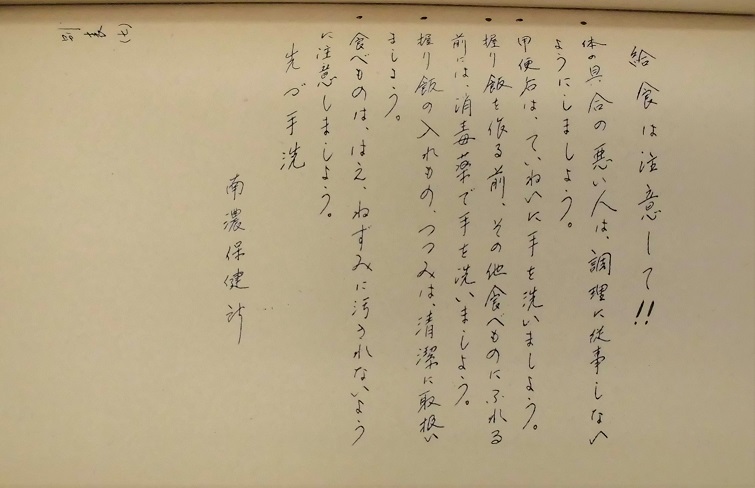 給食は注意して!!
・体の具合の悪い人は、調理に従事しない
ようにしましょう。
・用便后は、ていねいに手を洗いましょう。
握り飯を作る前、その他食べものにふれる
前には、消毒薬で手を洗いましょう。
・握り飯の入れもの、つつみは、清潔に取扱い
ましょう。
・食べものは、はえ、ねずみに汚されないよう
に注意しましょう。
先づ手洗
南濃保健所
(七)